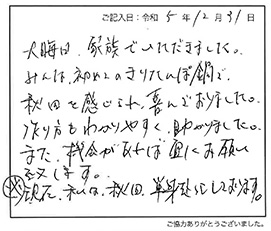 ご記入日：令和 5 年 12 月 31 日
大晦日、家族でいただきました。
みんな、初めてのきりたんぽ鍋で、
秋田を感じられ、喜んでおりました。
作り方もわかりやすく、助かりました。
また、機会があれば更にお願い
致します。
※現在、私は、秋田、単身赴任しております。
ご協力ありがとうございました。